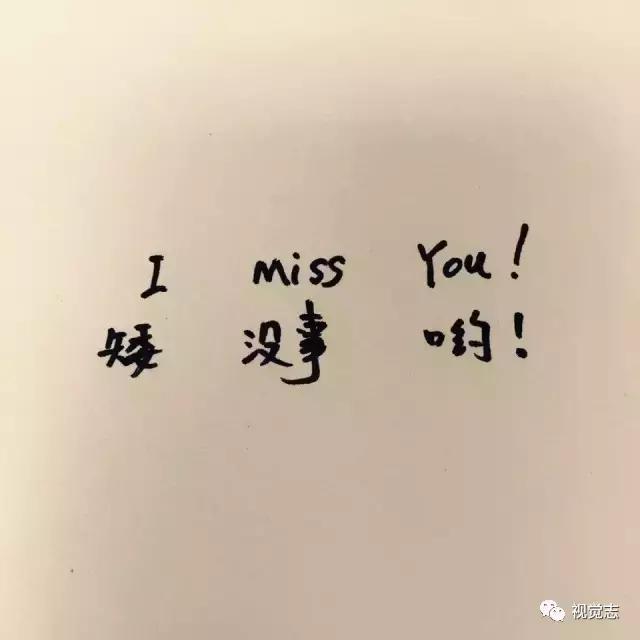 I miss You!
矮 没事 哟!
视觉志